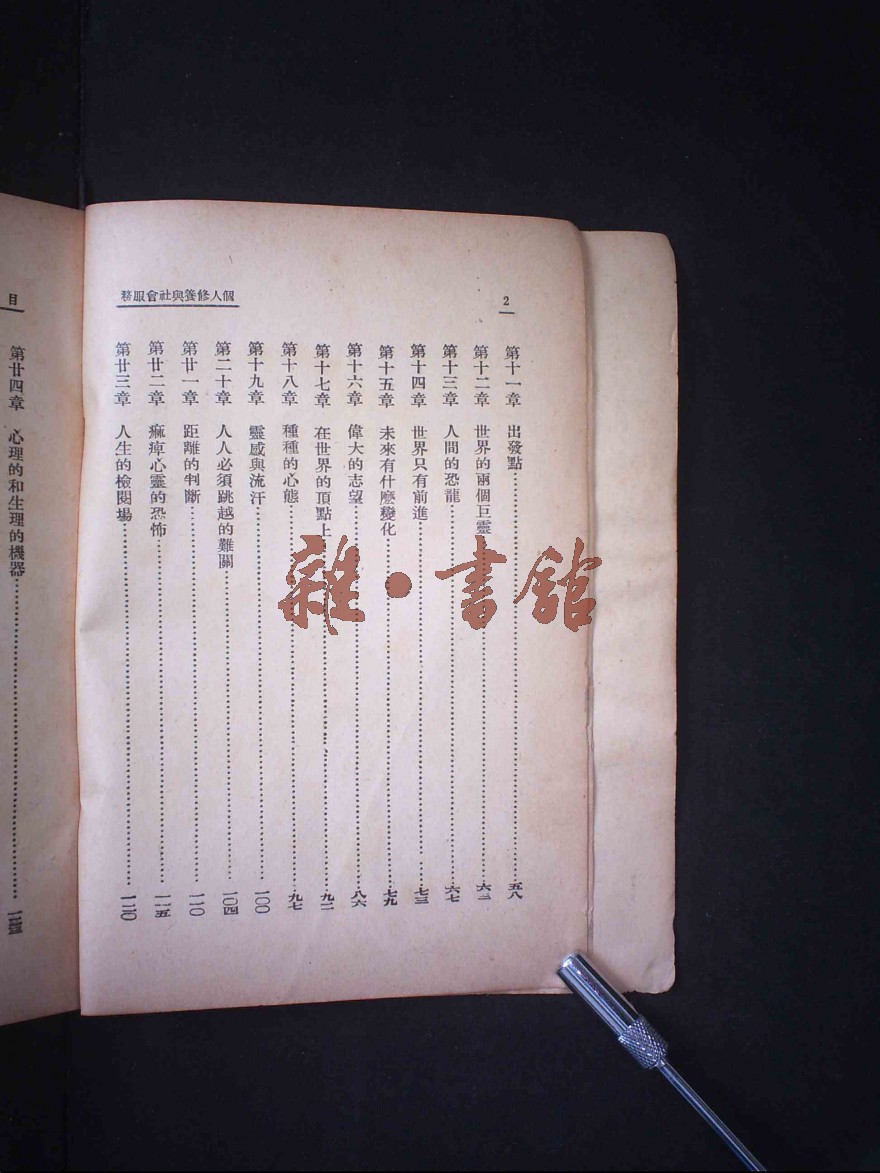 2
個人修養與社會服務
第十一章 出發點……五八
第十二章 世界的兩個巨靈……六二
第十三章 人間的恐龍……六七
第十四章 世界只有前進……七三
第十五章 未來有什麼變化……七九
第十六章 偉大的志望……八六
第十七章 在世界的頂點上……九二
第十八章 種種的心態……九七
第十九章 靈感與流汗……一〇〇
第二十章 人人必須跳越的難關……一〇四
第廿一章 距離的判斷……一一〇
第廿二章 痲痺心靈的恐怖……一一五
第廿三章 人生的檢閱場……一二〇
目
第廿四章 心理的和生理的機器……
雜·書館